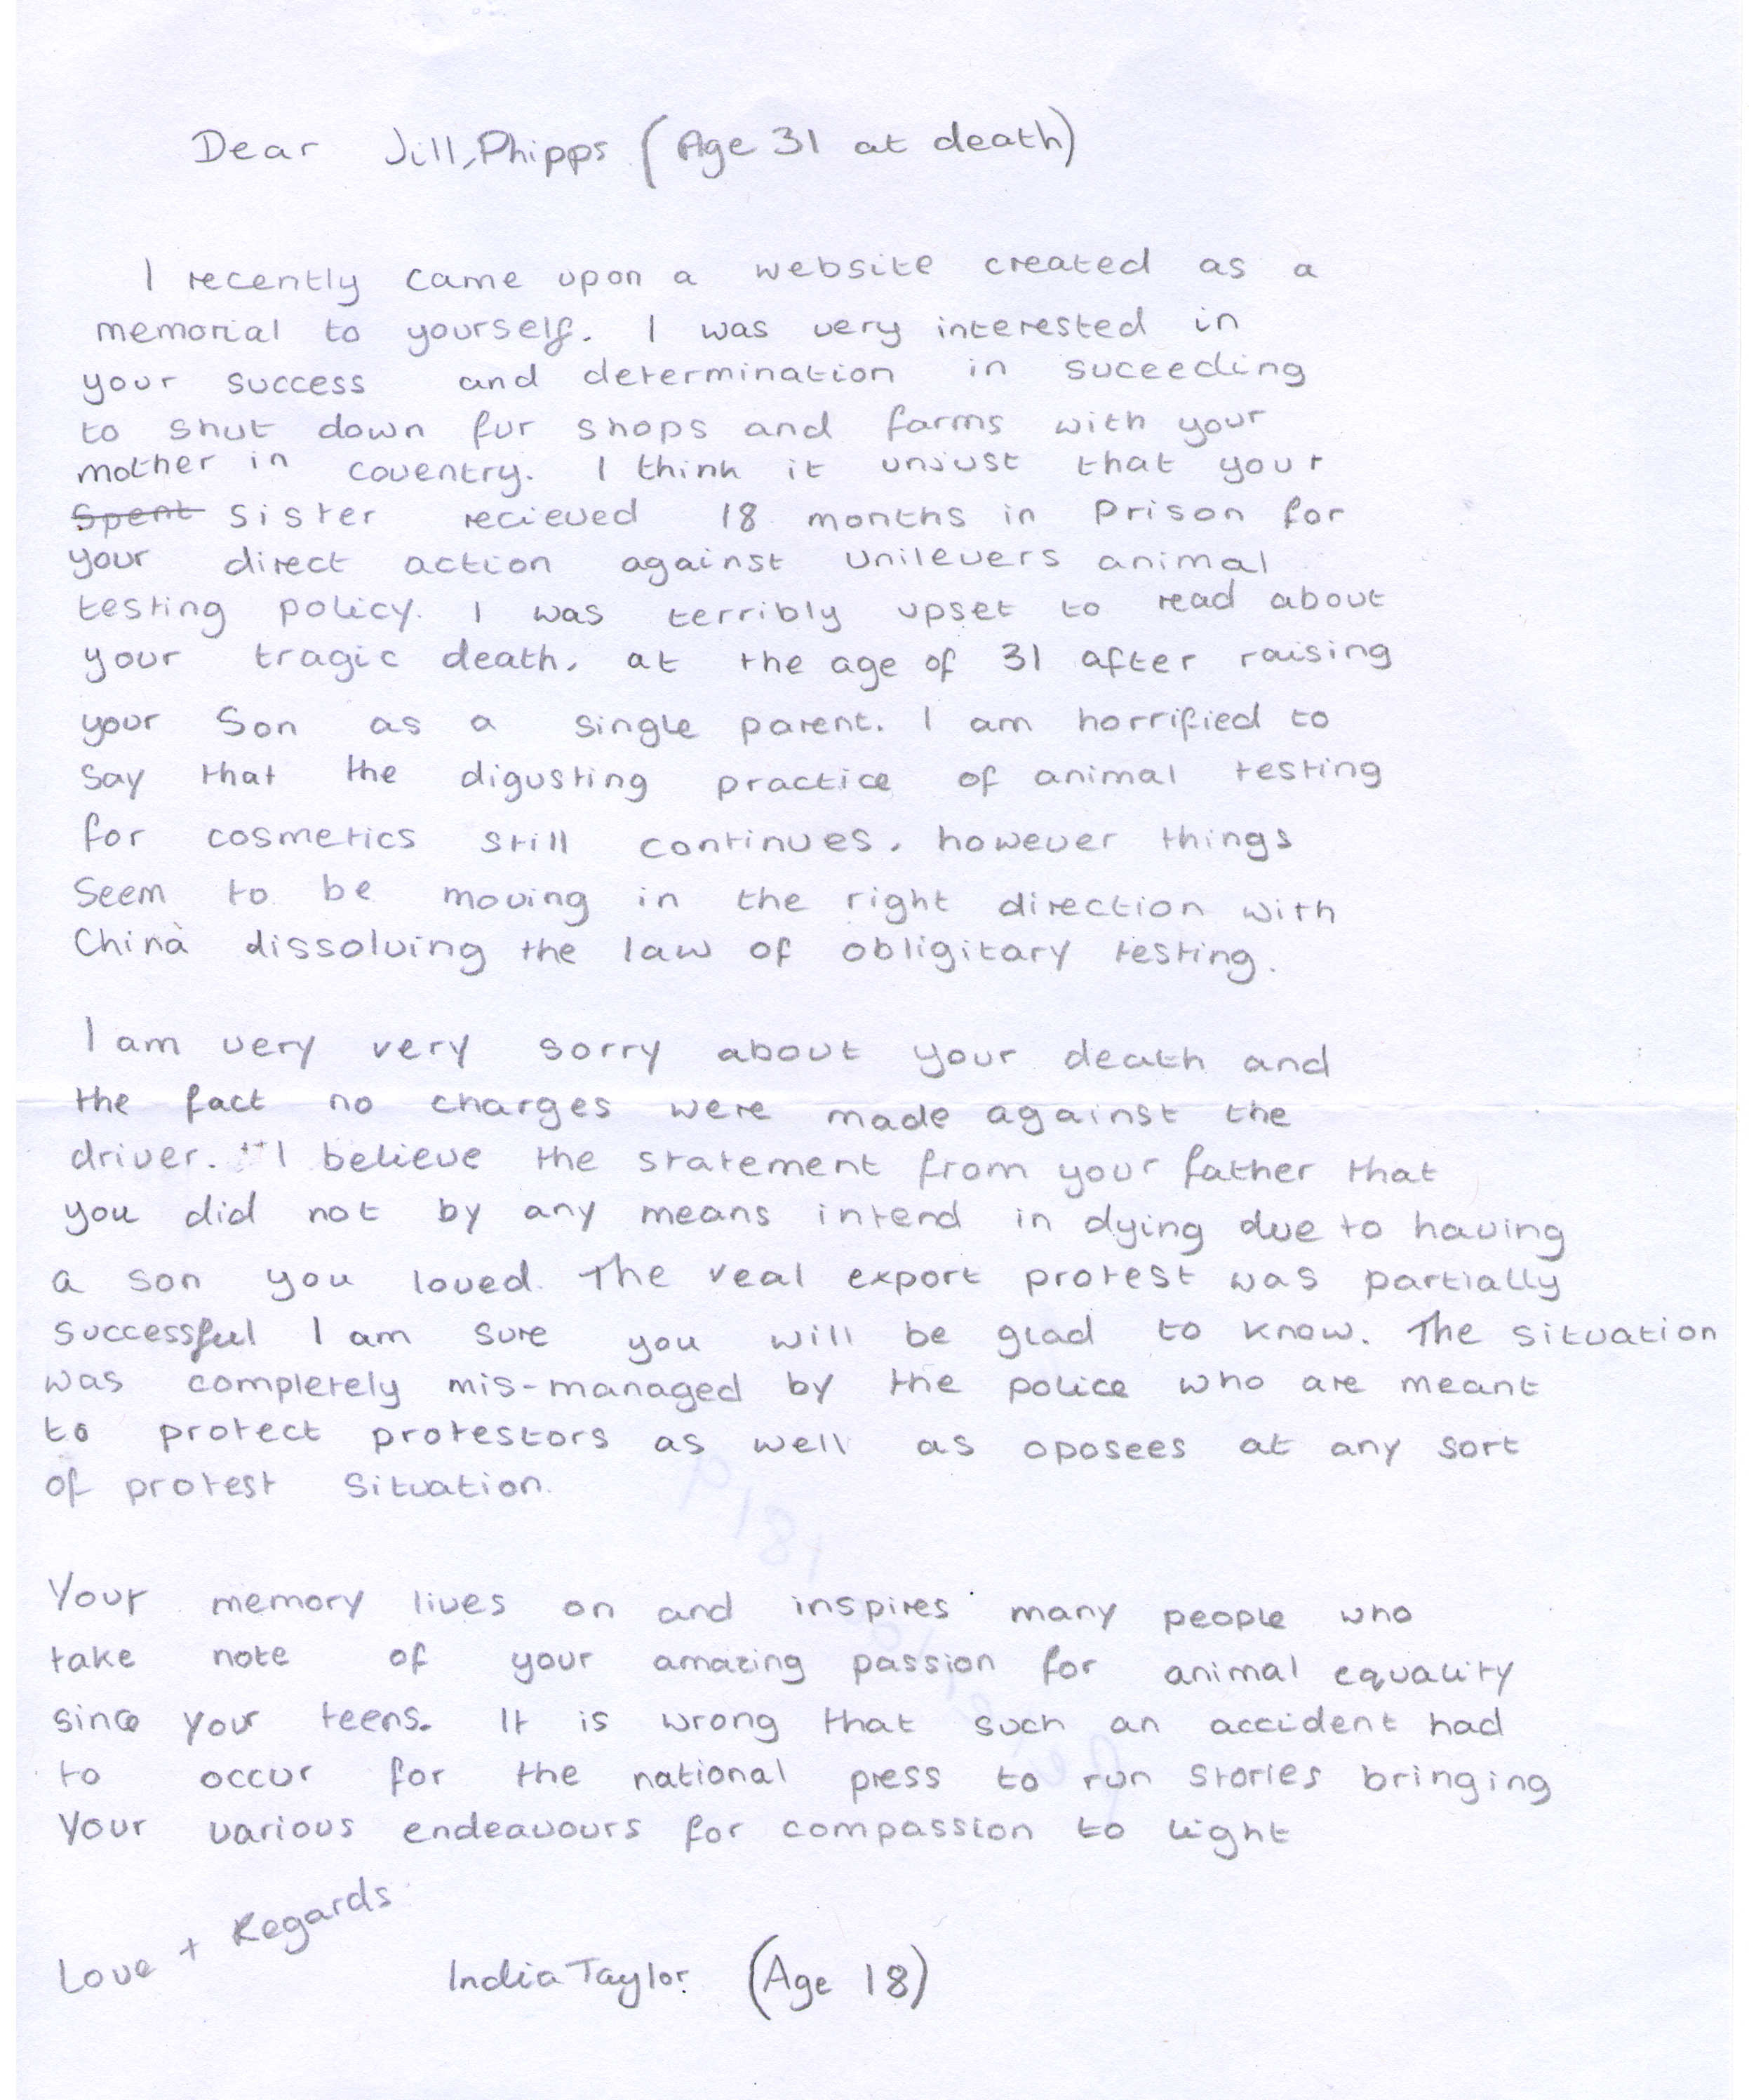 Dear Jill, Phipps (Age 31 at death)
I recently came upon a website created as a
memorial to yourself. I was very interested in
your success and determination in suceeding
to shut down fur shops and farms with your
mother in coventry. I think it unjust that your
Spent sister recieved 18 months in Prison for
your direct action against Unilevers animal
testing policy. I was terribly upset to read about
your tragic death. at the age of 31 after raising
your Son as a single parent. I am horrified to
say that the digusting practice of animal testing
for cosmetics still continues. however things
seem to be moving in the right direction with
China dissolving the law of obligitary testing.
I am very very sorry about your death and
the fact no charges were made against the
driver. I believe the statement from your father that
you did not by any means intend in dying due to having
a son you loved. The veal export protest was partially
successful I am sure you will be glad to know. The situation
was completely mis-managed by the police who are meant
to protect protestors as well as oposees at any sort
of protest situation.
Your memory lives on and inspires many people who
take note of your amazing passion for animal equality
since your teens. It is wrong that such an accident had
to occur for the national press to run stories bringing
Your various endeavours for compassion to light
Love + Regards
India Taylor (Age 18)